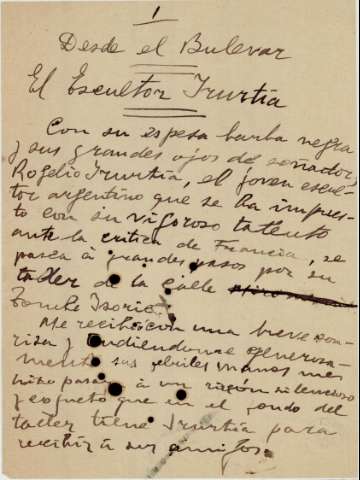 1
Desde el Bulevar
El Escultor Irurtia
Con su espesa barba negra
y sus grandes ojos de soñador,
Rogelio Irurtia, el joven escul-
tor argentino que se ha impues-
to con su vigoroso talento
ante la critica de Francia, se
pasea á grandes pasos por su
taller de la calle
Tombe Isoire.
Me recibe con una breve son-
risa y tendiendome generosa-
mente sus manos me
hizo pasar á un rincón silencioso
y coqueto que en el fondo del
taller tiene Irurtia para
recibir á sus amigos.